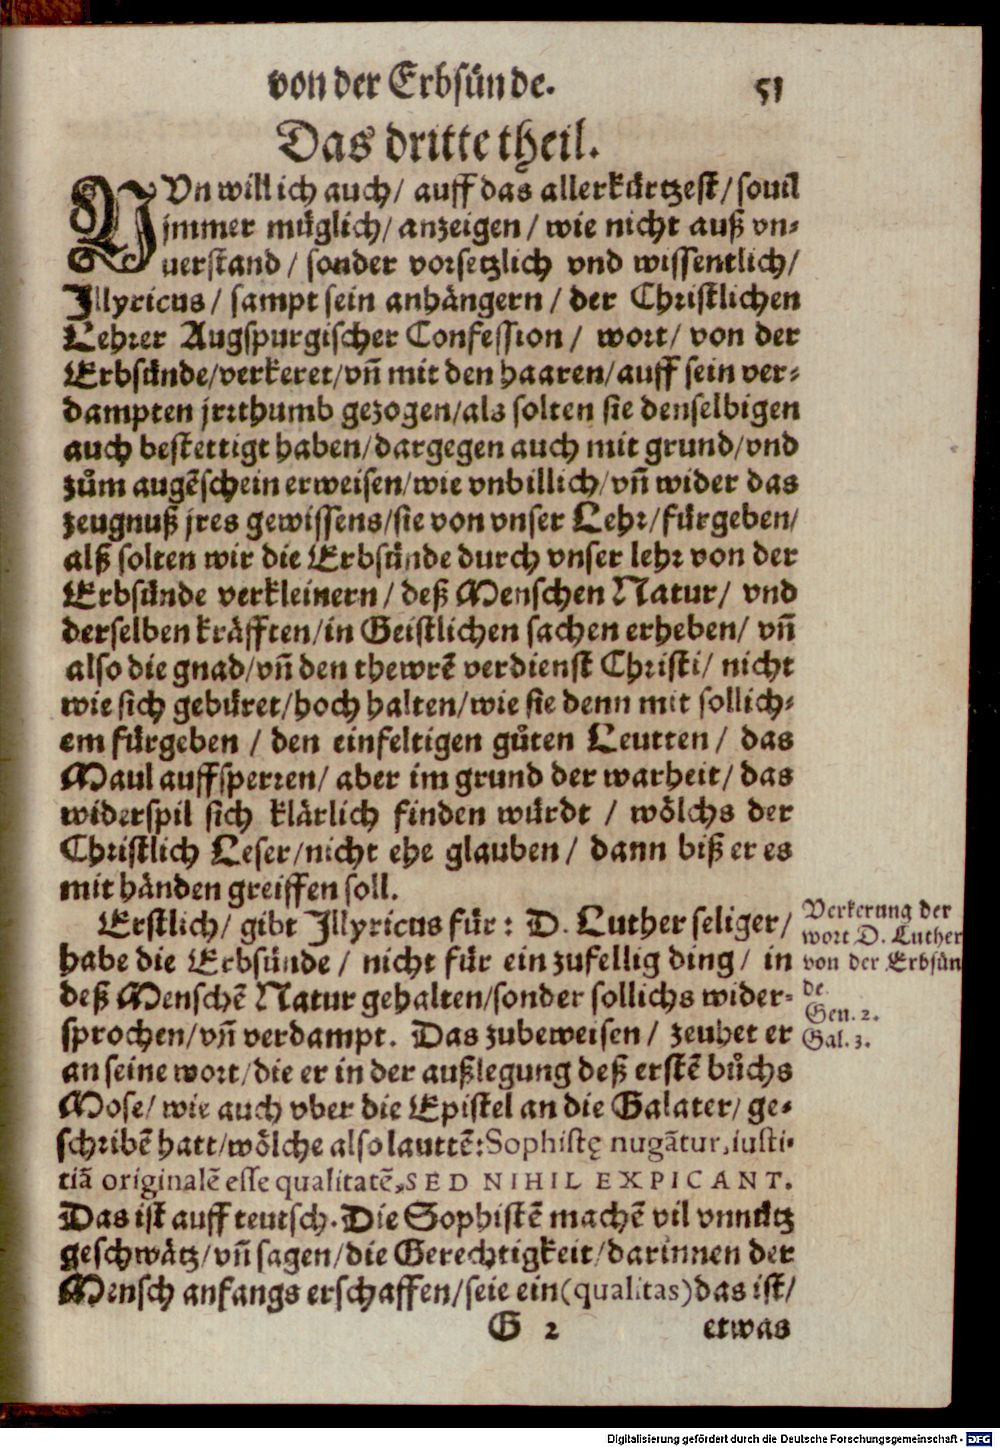 von der Erbsünde. 51
Das dritte theil.
NUn will ich auch/ auff das allerkürtzest/ souil
jmmer müglich/ anzeigen/ wie nicht auß vn-
uerstand/ sonder vorsetzlich vnd wissentlich/
Illyricus/ sampt sein anhängern/ der Christlichen
Lehrer Augspurgischer Confession/ wort/ von der
Erbsünde/verkeret/vñ mit den haaren/auff sein ver-
dampten jrrthumb gezogen/als solten sie denselbigen
auch bestettigt haben/dargegen auch mit grund/vnd
zům augẽschein erweisen/wie vnbillich/vñ wider das
zeugnuß jres gewissens/sie von vnser Lehr/fürgeben/
alß solten wir die Erbsünde durch vnser lehr von der
Erbsünde verkleinern/ deß Menschen Natur/ vnd
derselben kräfften/in Geistlichen sachen erheben/ vñ
also die gnad/vñ den thewrẽ verdienst Christi/ nicht
wie sich gebüret/hoch halten/wie sie denn mit sollich-
em fürgeben / den einfeltigen gůten Leutten/ das
Maul auffsperren/ aber im grund der warheit/ das
widerspil sich klärlich finden würdt / wölchs der
Christlich Leser/nicht ehe glauben/ dann biß er es
mit händen greiffen soll.
Erstlich/ gibt Illyricus für: D. Luther seliger/
habe die Erbsünde/ nicht für ein zufellig ding/ in
deß Menschẽ Natur gehalten/sonder sollichs wider-
sprochen/vñ verdampt. Das zubeweisen/ zeuhet er
an seine wort/die er in der außlegung deß erstẽ bůchs
Mose/ wie auch vber die Epistel an die Galater/ ge-
schribẽ hatt/wölche also lauttẽ: Sophistę nugãtur, iusti-
tiã originalẽ esse qualitatẽ, SED NIHIL EXPICANT.
Das ist auff teutsch. Die Sophistẽ machẽ vil vnnütz
geschwätz/vñ sagen/die Gerechtigkeit/darinnen der
Mensch anfangs erschaffen/seie ein (qualitas) das ist/
G 2 etwas
Verkerung der
wort D. Luther
von der Erbsün
de.
Gen. 2.
Gal. 3.
Digitalisierung gefördert durch die Deutsche Forschungsgemeinschaft - DFG